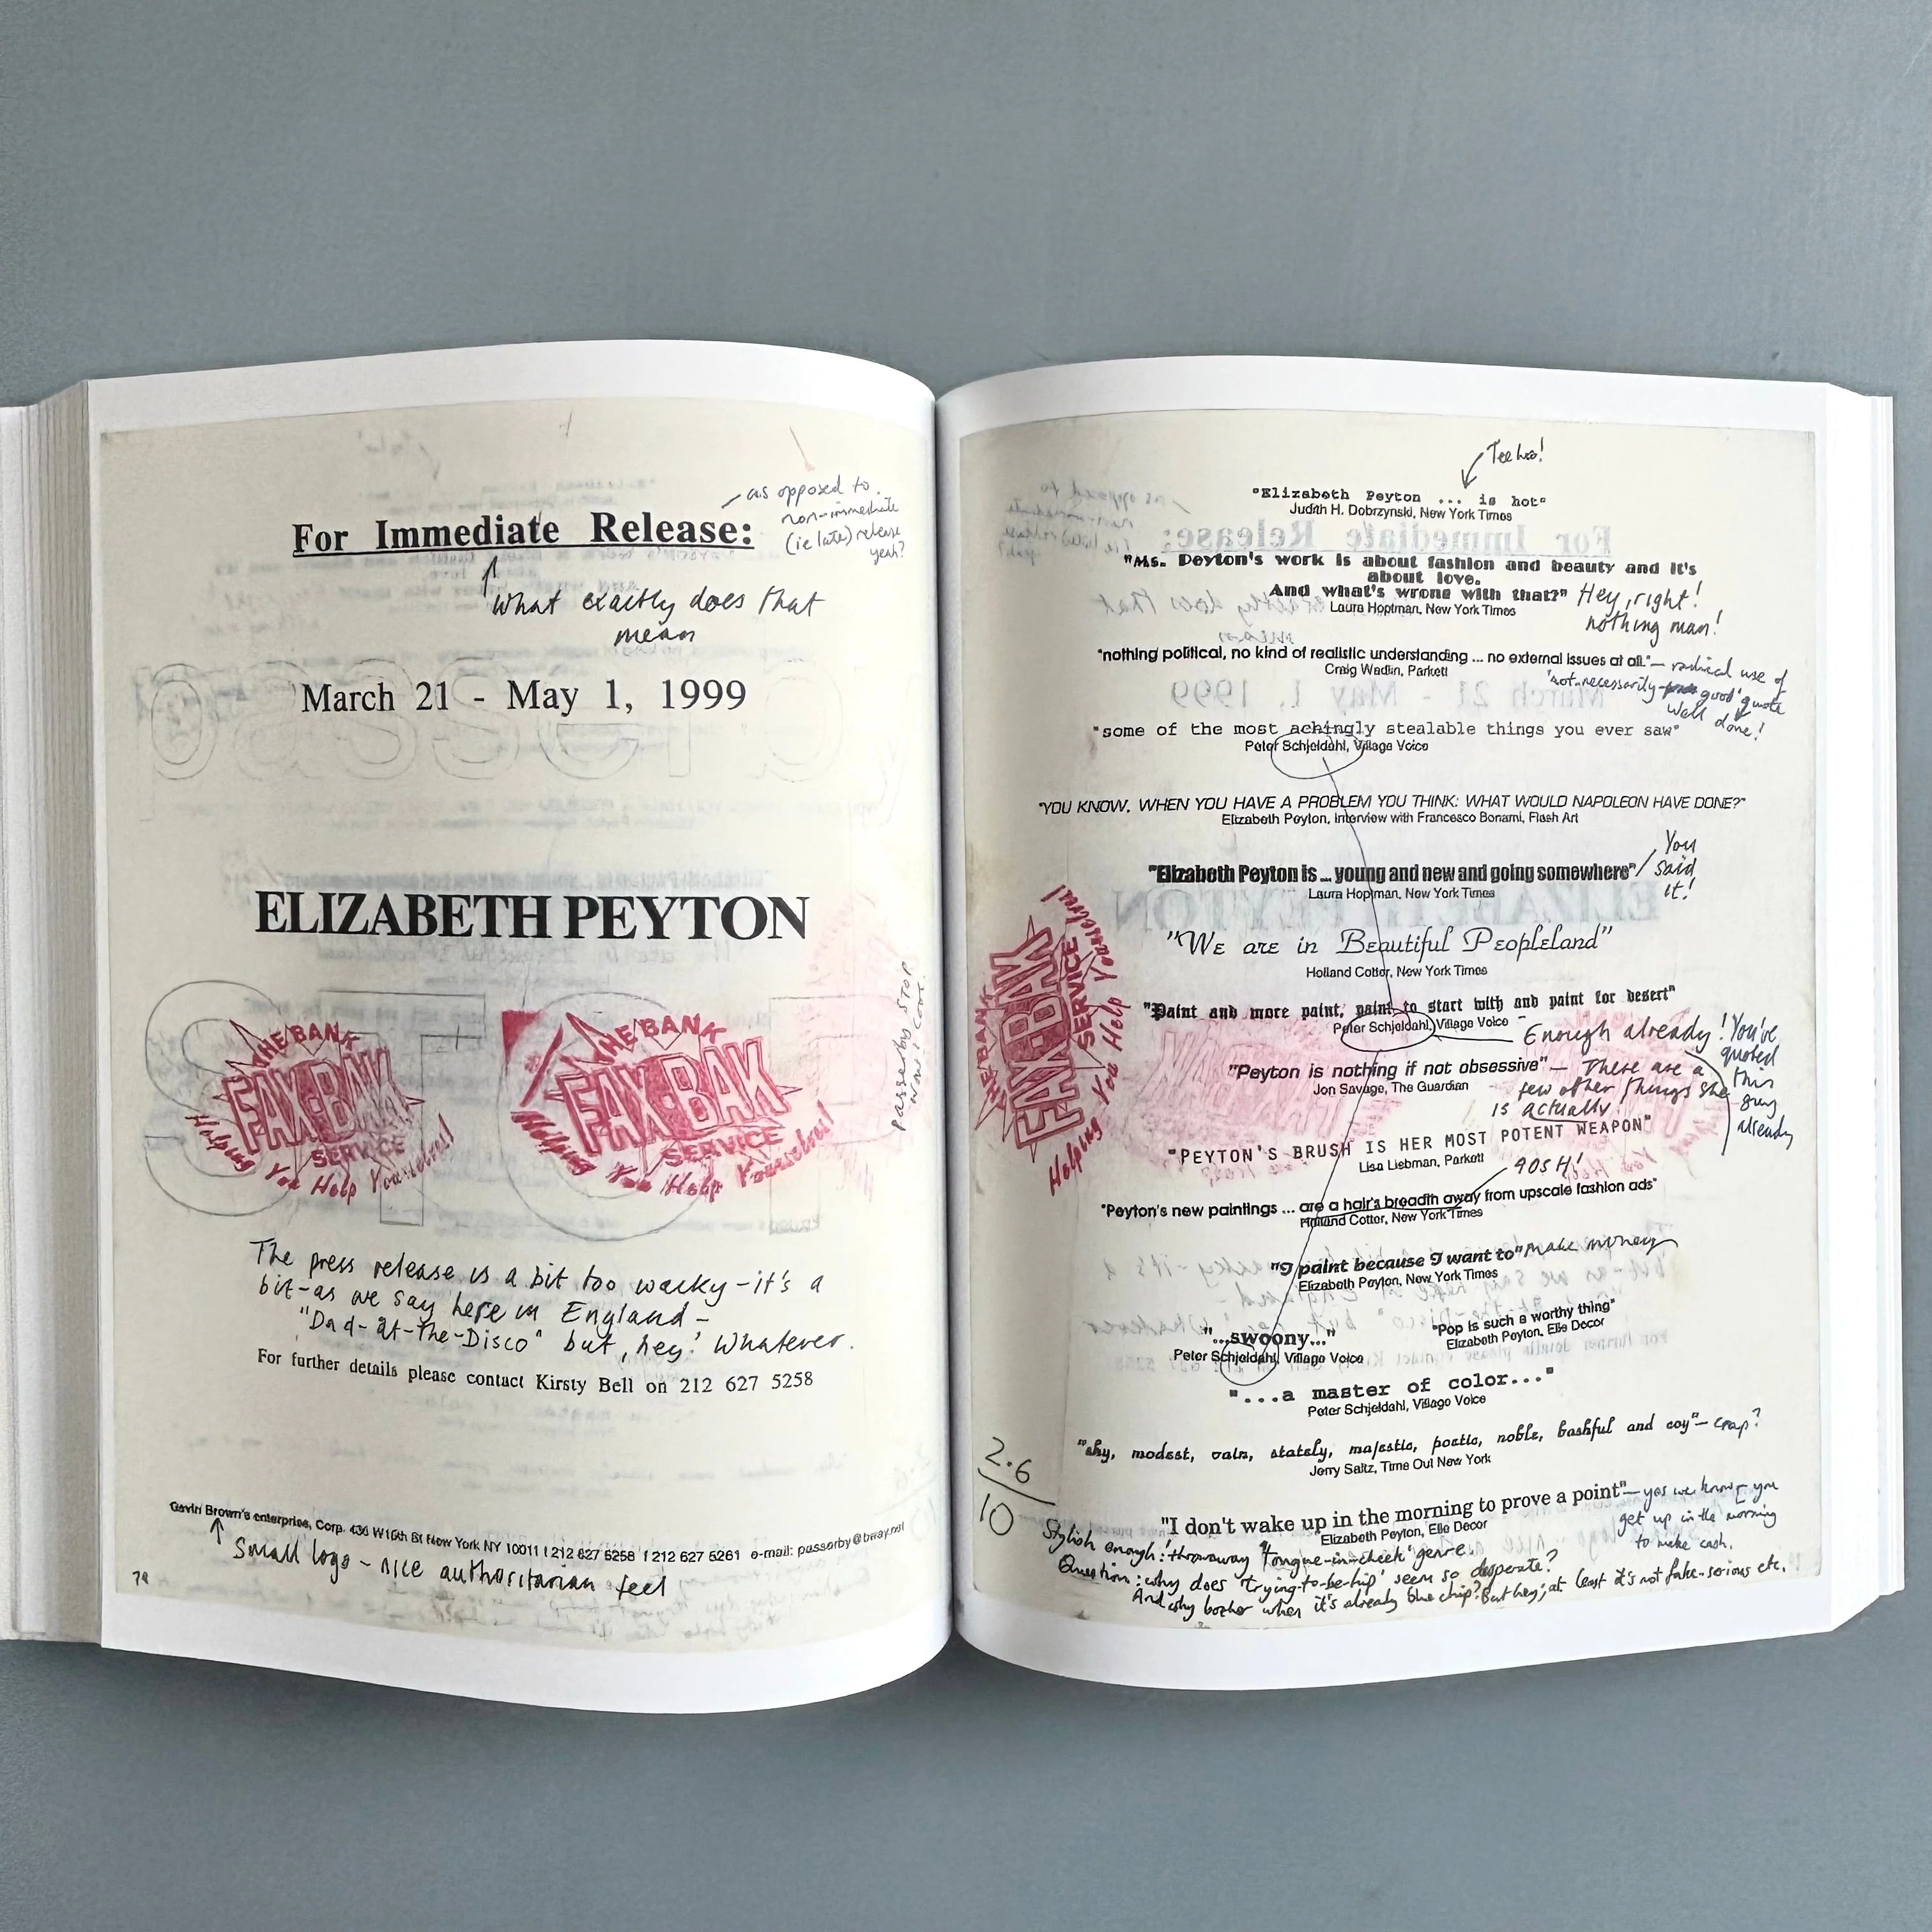 as opposed to
non-immediate
(ie late) release
yeah?
For Immediate Release:
What exactly does that
mean
March 21 - May 1, 1999
ELIZABETH PEYTON
THE BANK
FAX-BAK
SERVICE
Helping You Help Yourselves!
THE BANK
FAX-BAK
SERVICE
Helping You Help Yourselves!
Passerby STOP
The press release is a bit too wacky - it's a
bit - as we say here in England -
"Dad-at-the-Disco" but, hey! Whatever.
For further details please contact Kirsty Bell on 212 627 5258
Gavin Brown's enterprise, Corp. 436 W15th St New York NY 10011 t 212 627 5258 f 212 627 5261 e-mail: passerby@bway.net
Small logo - nice authoritarian feel
Tee hee!
"Elizabeth Peyton ... is hot"
Judith H. Dobrzynski, New York Times
"Ms. Peyton's work is about fashion and beauty and it's
about love.
And what's wrong with that?" Hey, right!
nothing man!
Laura Hoptman, New York Times
"nothing political, no kind of realistic understanding ... no external issues at all." - radical use of
'not-necessarily good' quote
Well done!
Craig Wadlin, Parkett
"some of the most achingly stealable things you ever saw"
Peter Schjeldahl, Village Voice
"YOU KNOW, WHEN YOU HAVE A PROBLEM YOU THINK: WHAT WOULD NAPOLEON HAVE DONE?"
Elizabeth Peyton, interview with Francesco Bonami, Flash Art
"Elizabeth Peyton is ... young and new and going somewhere" / You
said
it!
Laura Hoptman, New York Times
"We are in Beautiful Peopleland"
Holland Cotter, New York Times
"Paint and more paint, paint to start with and paint for desert"
Peter Schjeldahl, Village Voice - Enough already! You've
quoted
this
guy
already
"Peyton is nothing if not obsessive" - There are a
few other things she
is actually!
Jon Savage, The Guardian
"PEYTON'S BRUSH IS HER MOST POTENT WEAPON"
Lisa Liebman, Parkett
GOSH!
"Peyton's new paintings ... are a hair's breadth away from upscale fashion ads"
Holland Cotter, New York Times
"I paint because I want to" make money
Elizabeth Peyton, New York Times
"...swoony..."
Peter Schjeldahl, Village Voice
"Pop is such a worthy thing"
Elizabeth Peyton, Elle Decor
"...a master of color..."
Peter Schjeldahl, Village Voice
"shy, modest, vain, stately, majestic, poetic, noble, bashful and coy" - crap?
Jerry Saltz, Time Out New York
"I don't wake up in the morning to prove a point" - yes we know - you
get up in the morning
to make cash.
Elizabeth Peyton, Elle Decor
THE BANK
FAX-BAK
SERVICE
Helping You Help Yourselves!
2.6
10
Stylish enough! throwaway 'tongue-in-cheek' genre
Question: why does 'trying-to-be-hip' seem so desperate?
And why bother when it's already blue chip? But hey; at least it's not fake-serious etc.